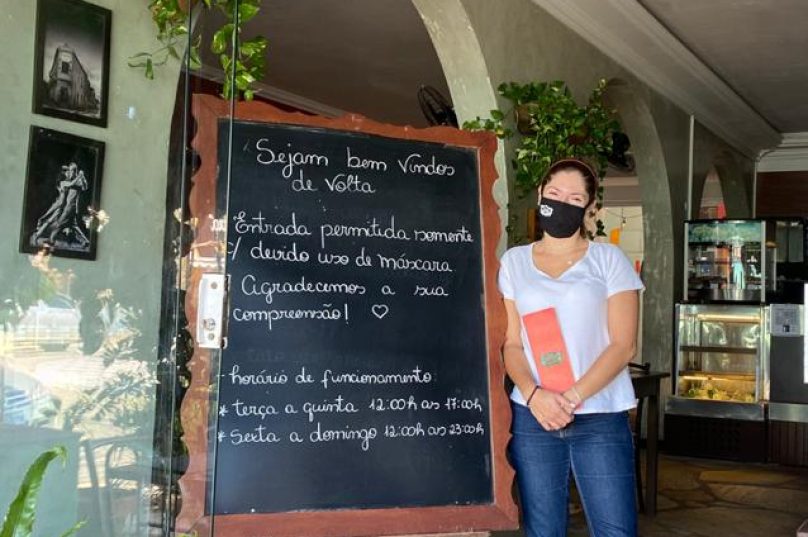 Sejam bem Vindos
de Volta
Entrada permitida somente
c/ devido uso de máscara
Agradecemos a sua
compreensão! ♡
- horário de funcionamento:
* terça a quinta 12:00h as 17:00h
* Sexta a domingo 12:00h as 23:00h